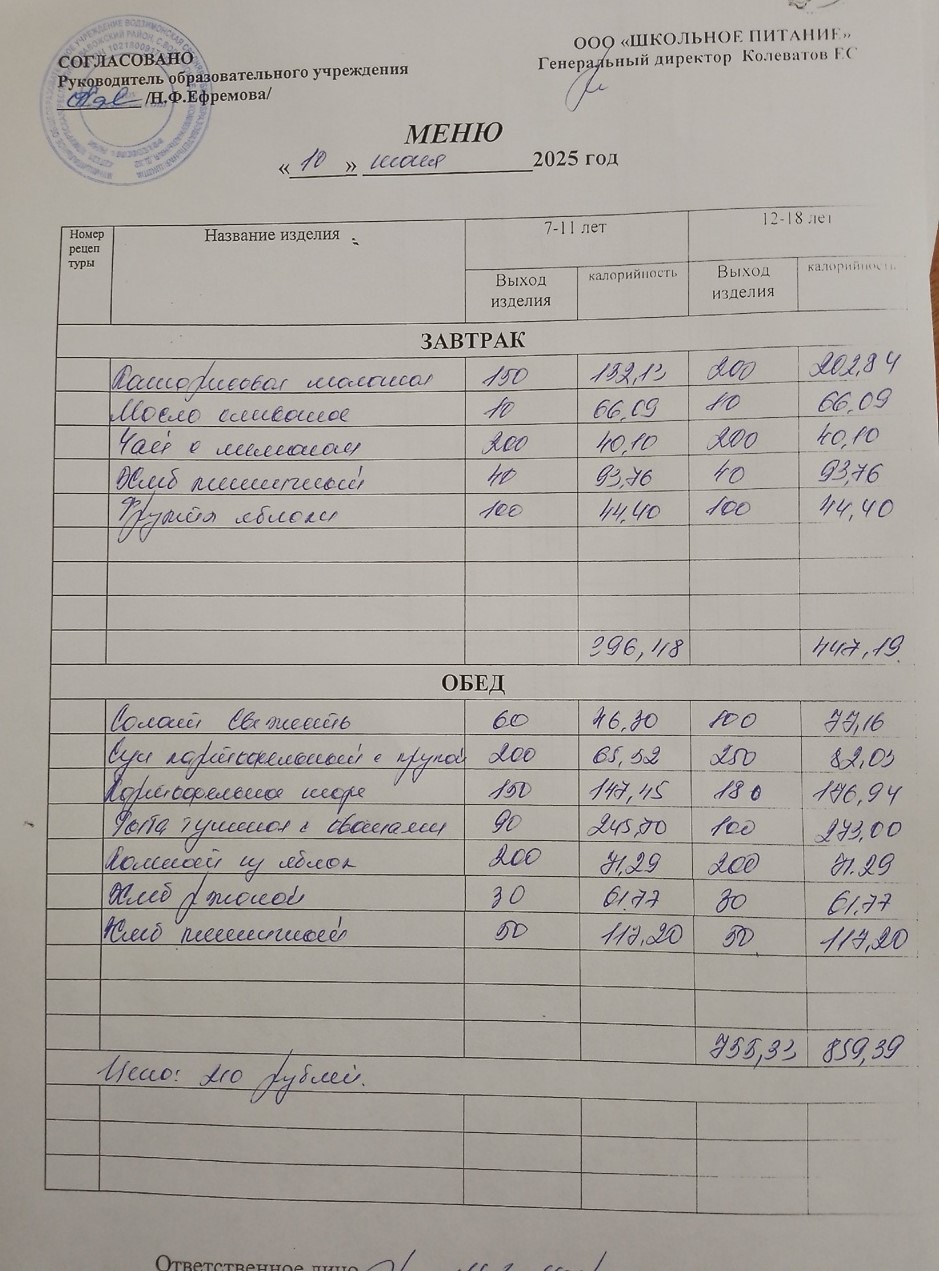 СОГЛАСОВАНО
Руководитель образовательного учреждения
/Н.Ф.Ефремова/
ООО «ШКОЛЬНОЕ ПИТАНИЕ»
Генеральный директор Колеватов ЕС
МЕНЮ
« 10 » июня 2025 год
Номер рецептуры Название изделия 7-11 лет 12-18 лет
Выход изделия калорийность Выход изделия калорийность
ЗАВТРАК
Каша рисовая молочная 150 152,13 200 202,84
Масло сливочное 10 66,09 10 66,09
Чай с лимоном 200 40,10 200 40,10
Хлеб пшеничный 40 93,76 40 93,76
Фрукты яблоки 100 44,40 100 44,40
396,48 447,19
ОБЕД
Салат Свежесть 60 46,30 100 77,16
Суп картофельный с крупой 200 65,52 250 82,03
Картофельное пюре 150 147,45 180 176,94
Рыба тушеная с овощами 90 245,70 100 273,00
Компот из яблок 200 71,29 200 71.29
Хлеб ржаной 30 61.77 30 61,77
Хлеб пшеничный 50 117,20 50 117,20
755,33 859,39
Цена: 210 рублей.
Ответственное лицо